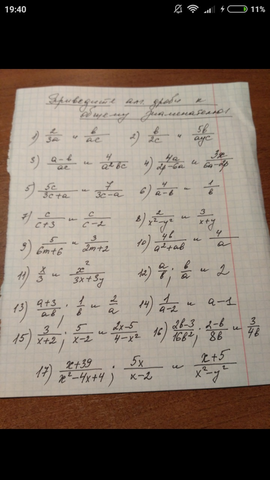 19:40 11%
Приведите алг дроби к
общему знаменателю!
1) 2/3a и b/ac 2) b/2c и 5b/ayc
3) a-b/ac и 4/a²bc 4) 4a/2p-6a и 3x/6a-2p
5) 5c/3c+a и 7/3c-a 6) 4/a-b - 1/b
7) c/c+3 и c/c-2 8) 2/x²-y² и 3/x+y
9) 5/6m+6 и 3/2m+2 10) 4b/a²+ab и 4/a
11) x/3 и x²/3x+3y 12) a/b; b/a и 2
13) a+3/ab; 1/b и 2/a 14) 1/a-2 и a-1
15) 3/x+2; 5/x-2 и 2x-5/4-x² 16) 2b-3/16b²; 2-b/8b и 3/4b
17) x+39/x²-4x+4; 5x/x-2 и x+5/x²-y²